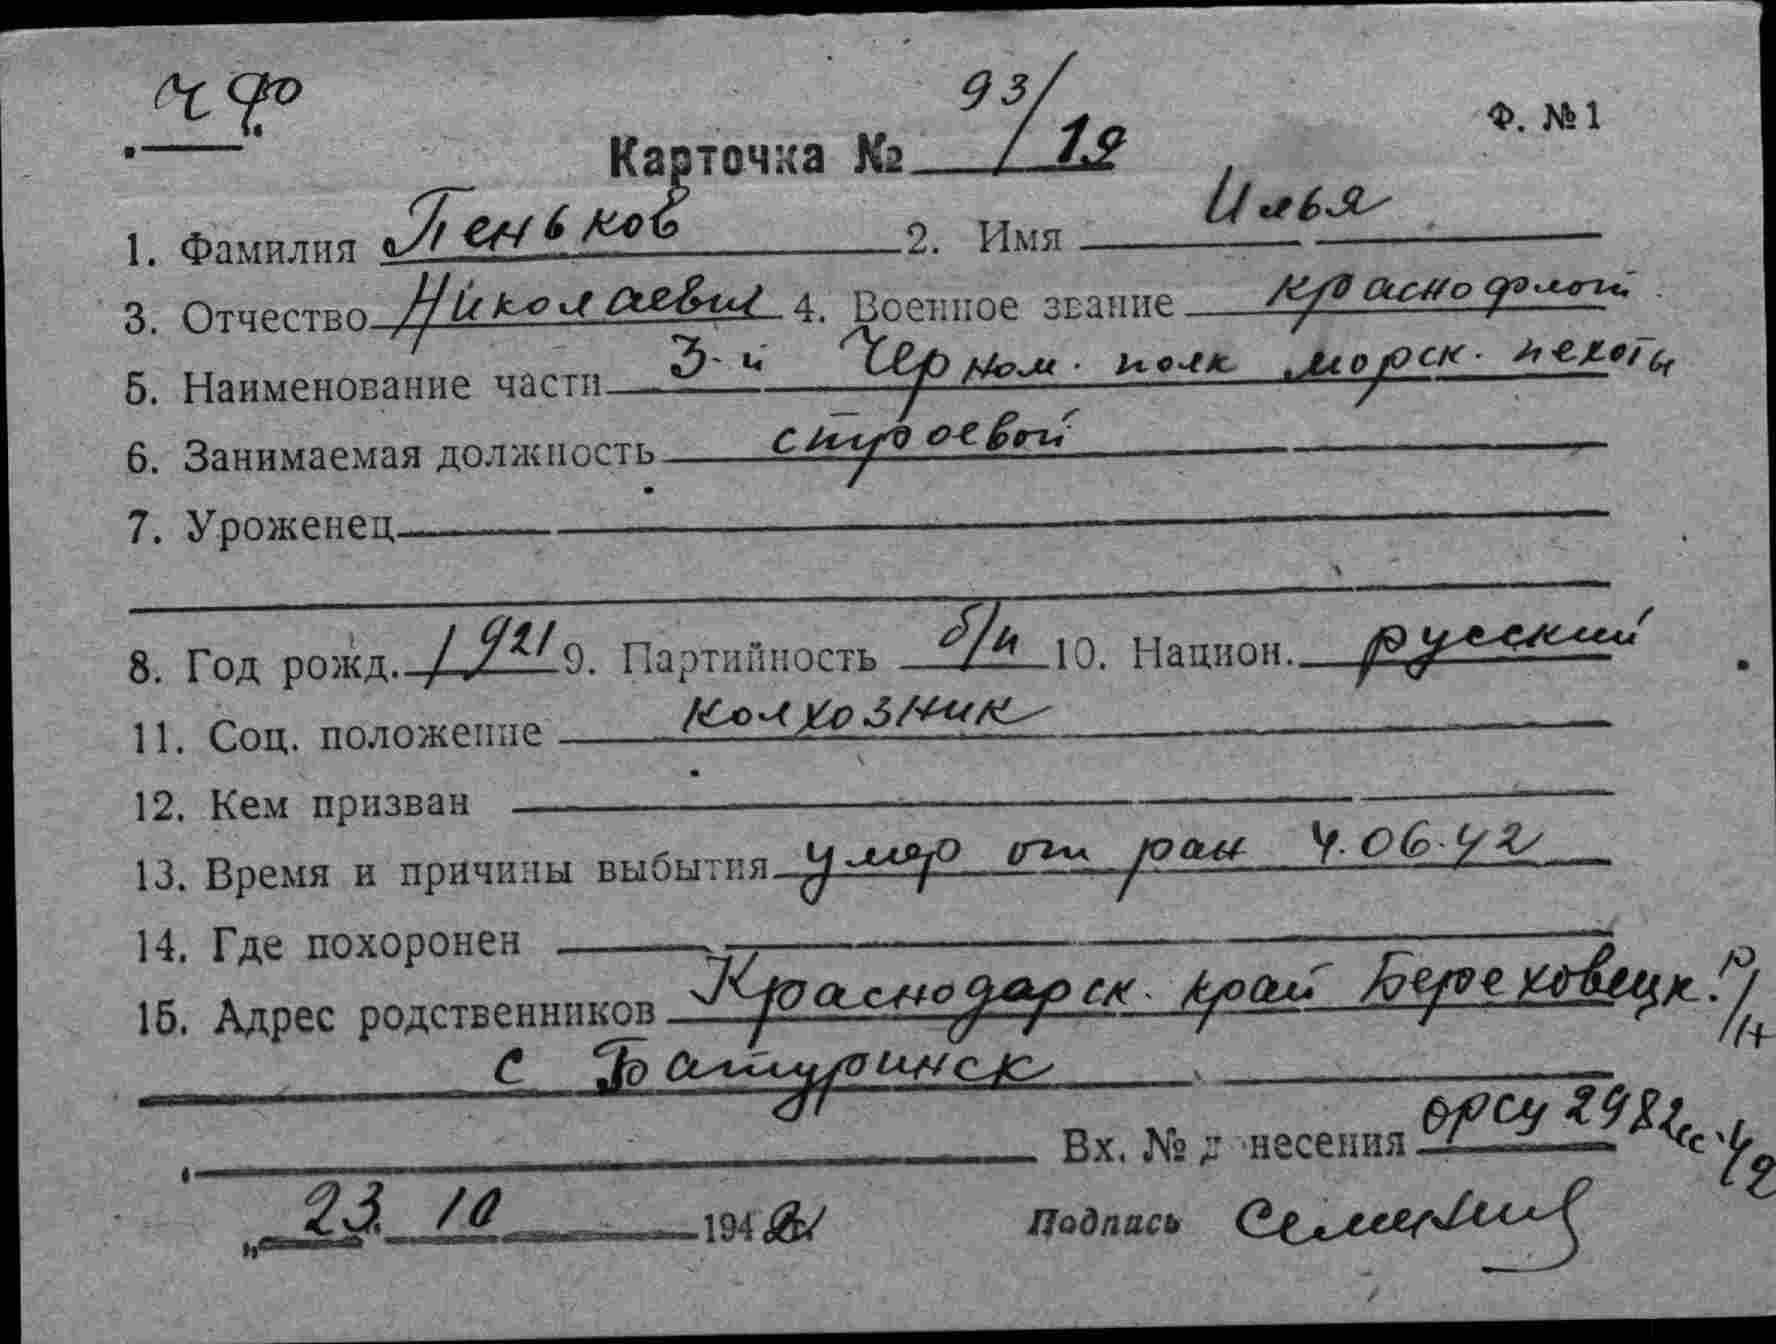 ЧФ
Ф. №1
Карточка № 93/19
1. Фамилия Пеньков 2. Имя Илья
3. Отчество Николаевич 4. Военное звание краснофлот
5. Наименование части 3-й Черном. полк морск. пехоты
6. Занимаемая должность строевой
7. Уроженец
8. Год рожд. 1921 9. Партийность б/п 10. Национ. русский
11. Соц. положение колхозник
12. Кем призван
13. Время и причины выбытия умер от ран 4.06.42
14. Где похоронен
15. Адрес родственников Краснодарск. край Береховецк. р/н
с Батуринск
Вх. № донесения орсу 2982сс-42
„23. 10 1942
Подпись